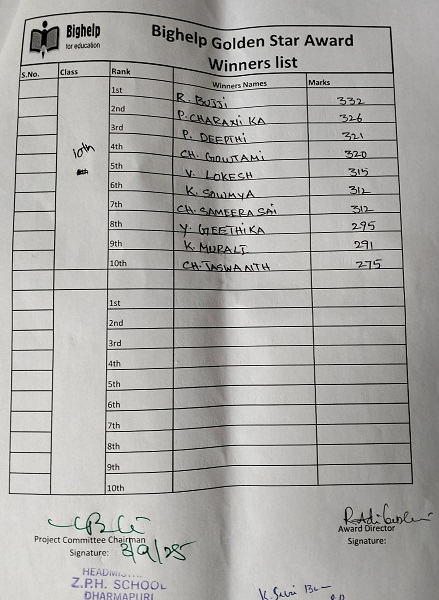 Bighelp
for education
Bighelp Golden Star Award
Winners list
S.No. Class Rank Winners Names Marks
10th
1st R. BUJJI 332
2nd P. CHARANI KA 326
3rd P. DEEPTHI 321
4th CH. GOWTAMI 320
5th V. LOKESH 315
6th K. SOWMYA 312
7th CH. SAMEERA SAI 312
8th Y. GEETHIKA 295
9th K. MURALI 291
10th CH. JASWANTH 275
1st
2nd
3rd
4th
5th
6th
7th
8th
9th
10th
Project Committee Chairman
Signature: 3/9/25
Award Director
Signature:
Z.P.H. SCHOOL
DHARMAPURI